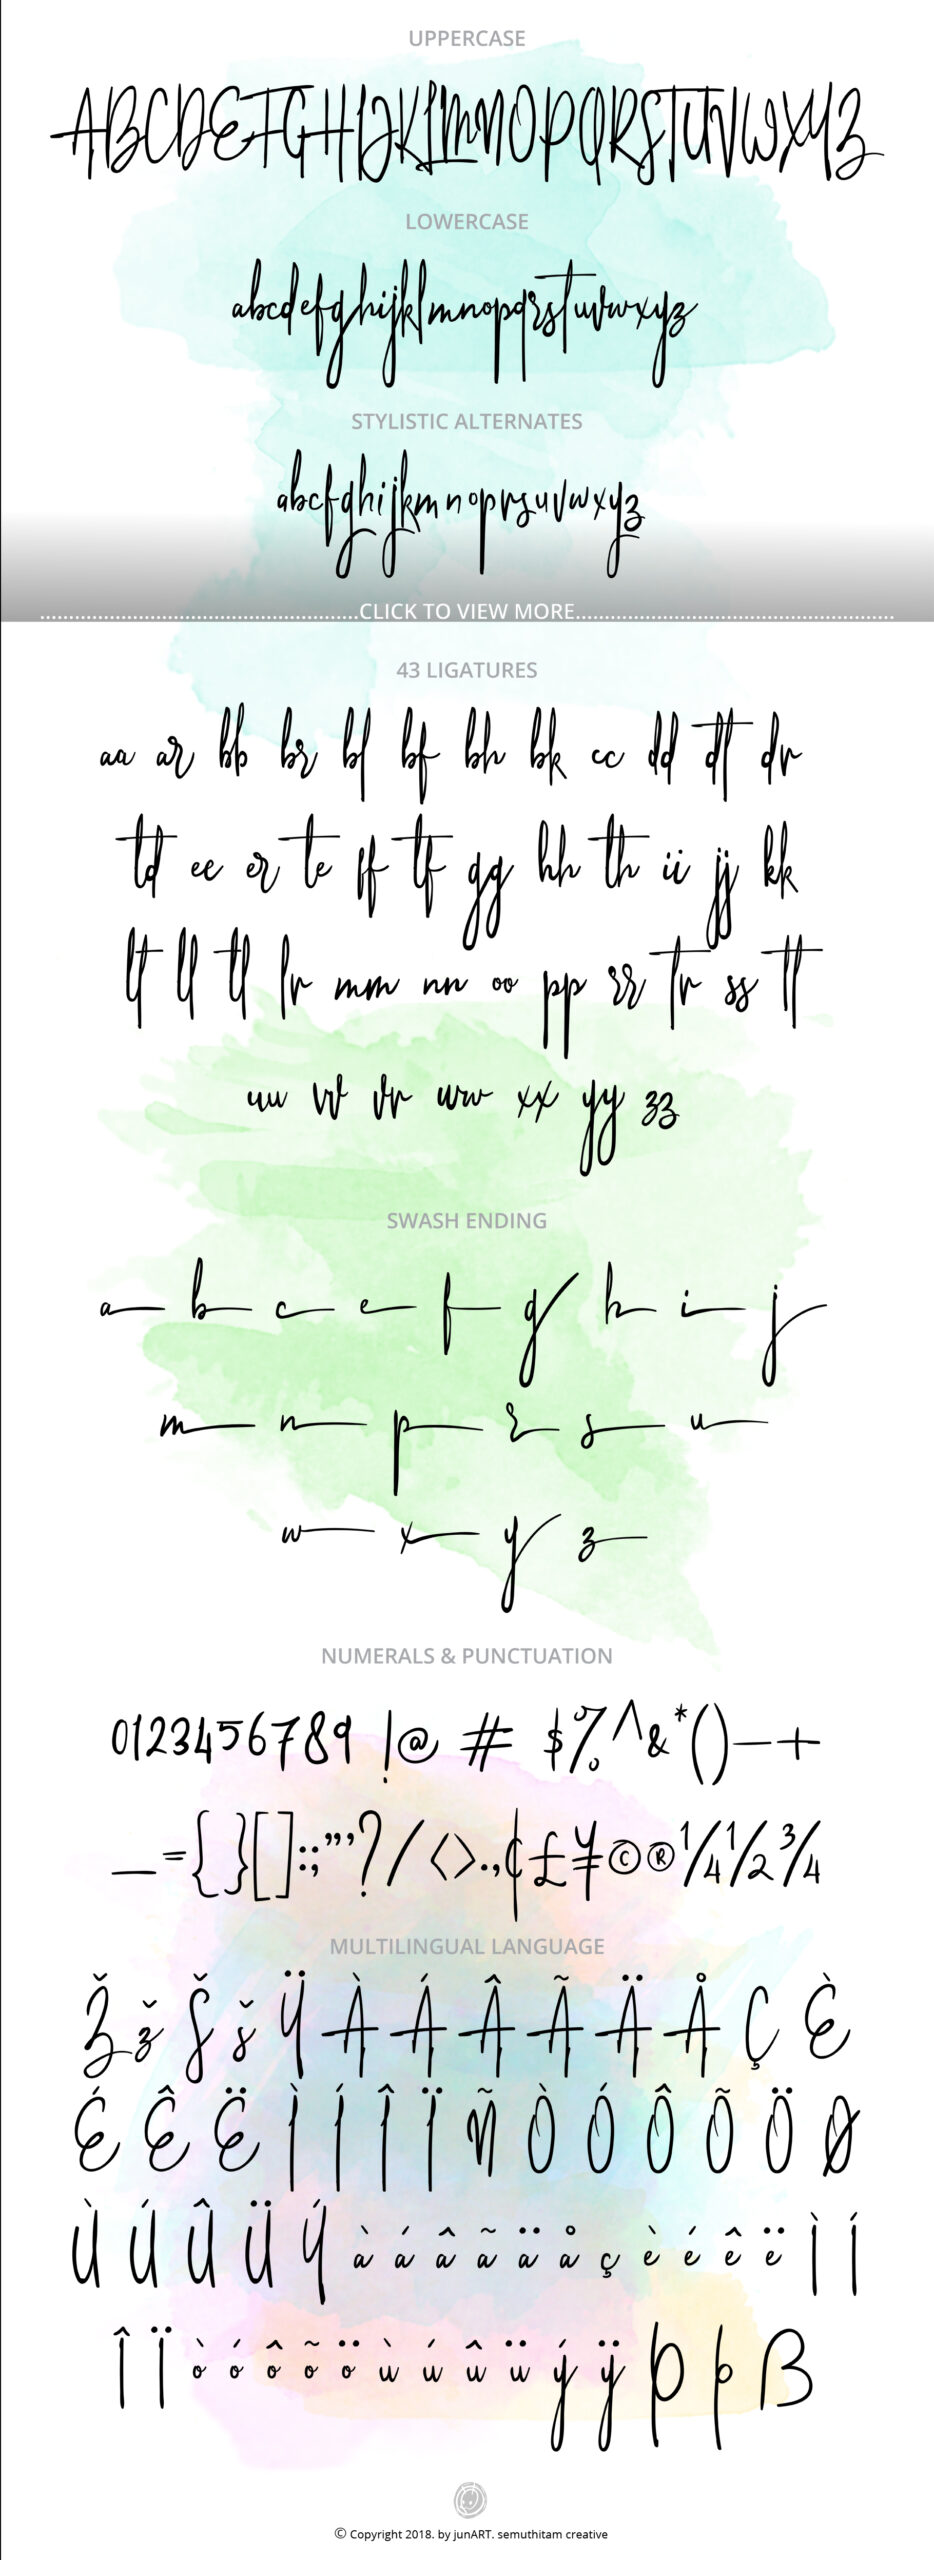 UPPERCASE
ABCDEFGHIJKLMNOPQRSTUVWXYZ
LOWERCASE
abcdefghijklmnopqrstuvwxyz
STYLISTIC ALTERNATES
abcfghijkmnoprsuvwxyz
CLICK TO VIEW MORE
43 LIGATURES
aa ar bb br bl bf bh bk cc dd dt dr
td ee er te ff tf gg hh th ii jj kk
lt ll tl lr mm nn oo pp rr tr ss tt
uu vv vr ww xx yy zz
SWASH ENDING
a b c e f g h i j
m n p r s u
w x y z
NUMERALS & PUNCTUATION
0123456789 !@ # $%^&*()—+
_={}[]:;"'?/<>.,¢£¥©®¼½¾
MULTILINGUAL LANGUAGE
Ž ž Š š Ÿ À Á Â Ã Ä Å Ç È
É Ê Ë Ì Í Î Ï Ñ Ò Ó Ô Õ Ö Ø
Ù Ú Û Ü Ý à á â ã ä å ç è é ê ë ì í
î ï ò ó ô õ ö ù ú û ü ý ÿ Þ þ ß
© Copyright 2018. by junART. semuthitam creative